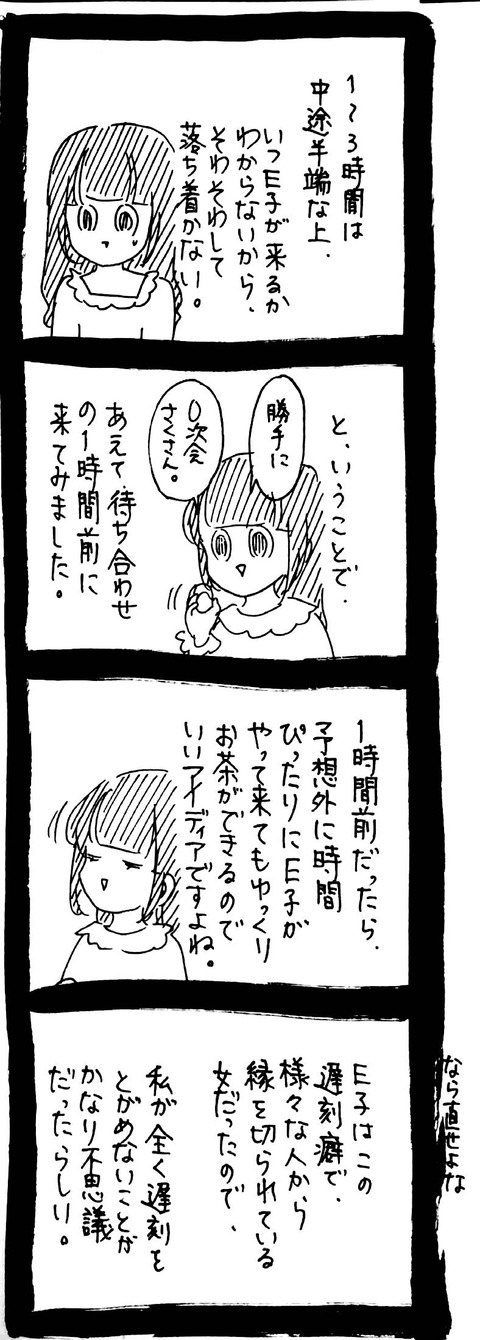 1〜3時間は
中途半端な上、
いつE子が来るか
わからないから、
そわそわして
落ち着かない。
と、いうことで、
勝手に
0次会
さくさん。
あえて、待ち合わせ
の1時間前に
来てみました。
1時間前だったら、
予想外に時間
ぴったりにE子が
やって来てもゆっくり
お茶ができるので
いいアイディアですよね。
E子はこの
遅刻癖で、
様々な人から
縁を切られている
女だったので、
私が全く遅刻を
とがめないことが
かなり不思議
だったらしい。
なら直せよな